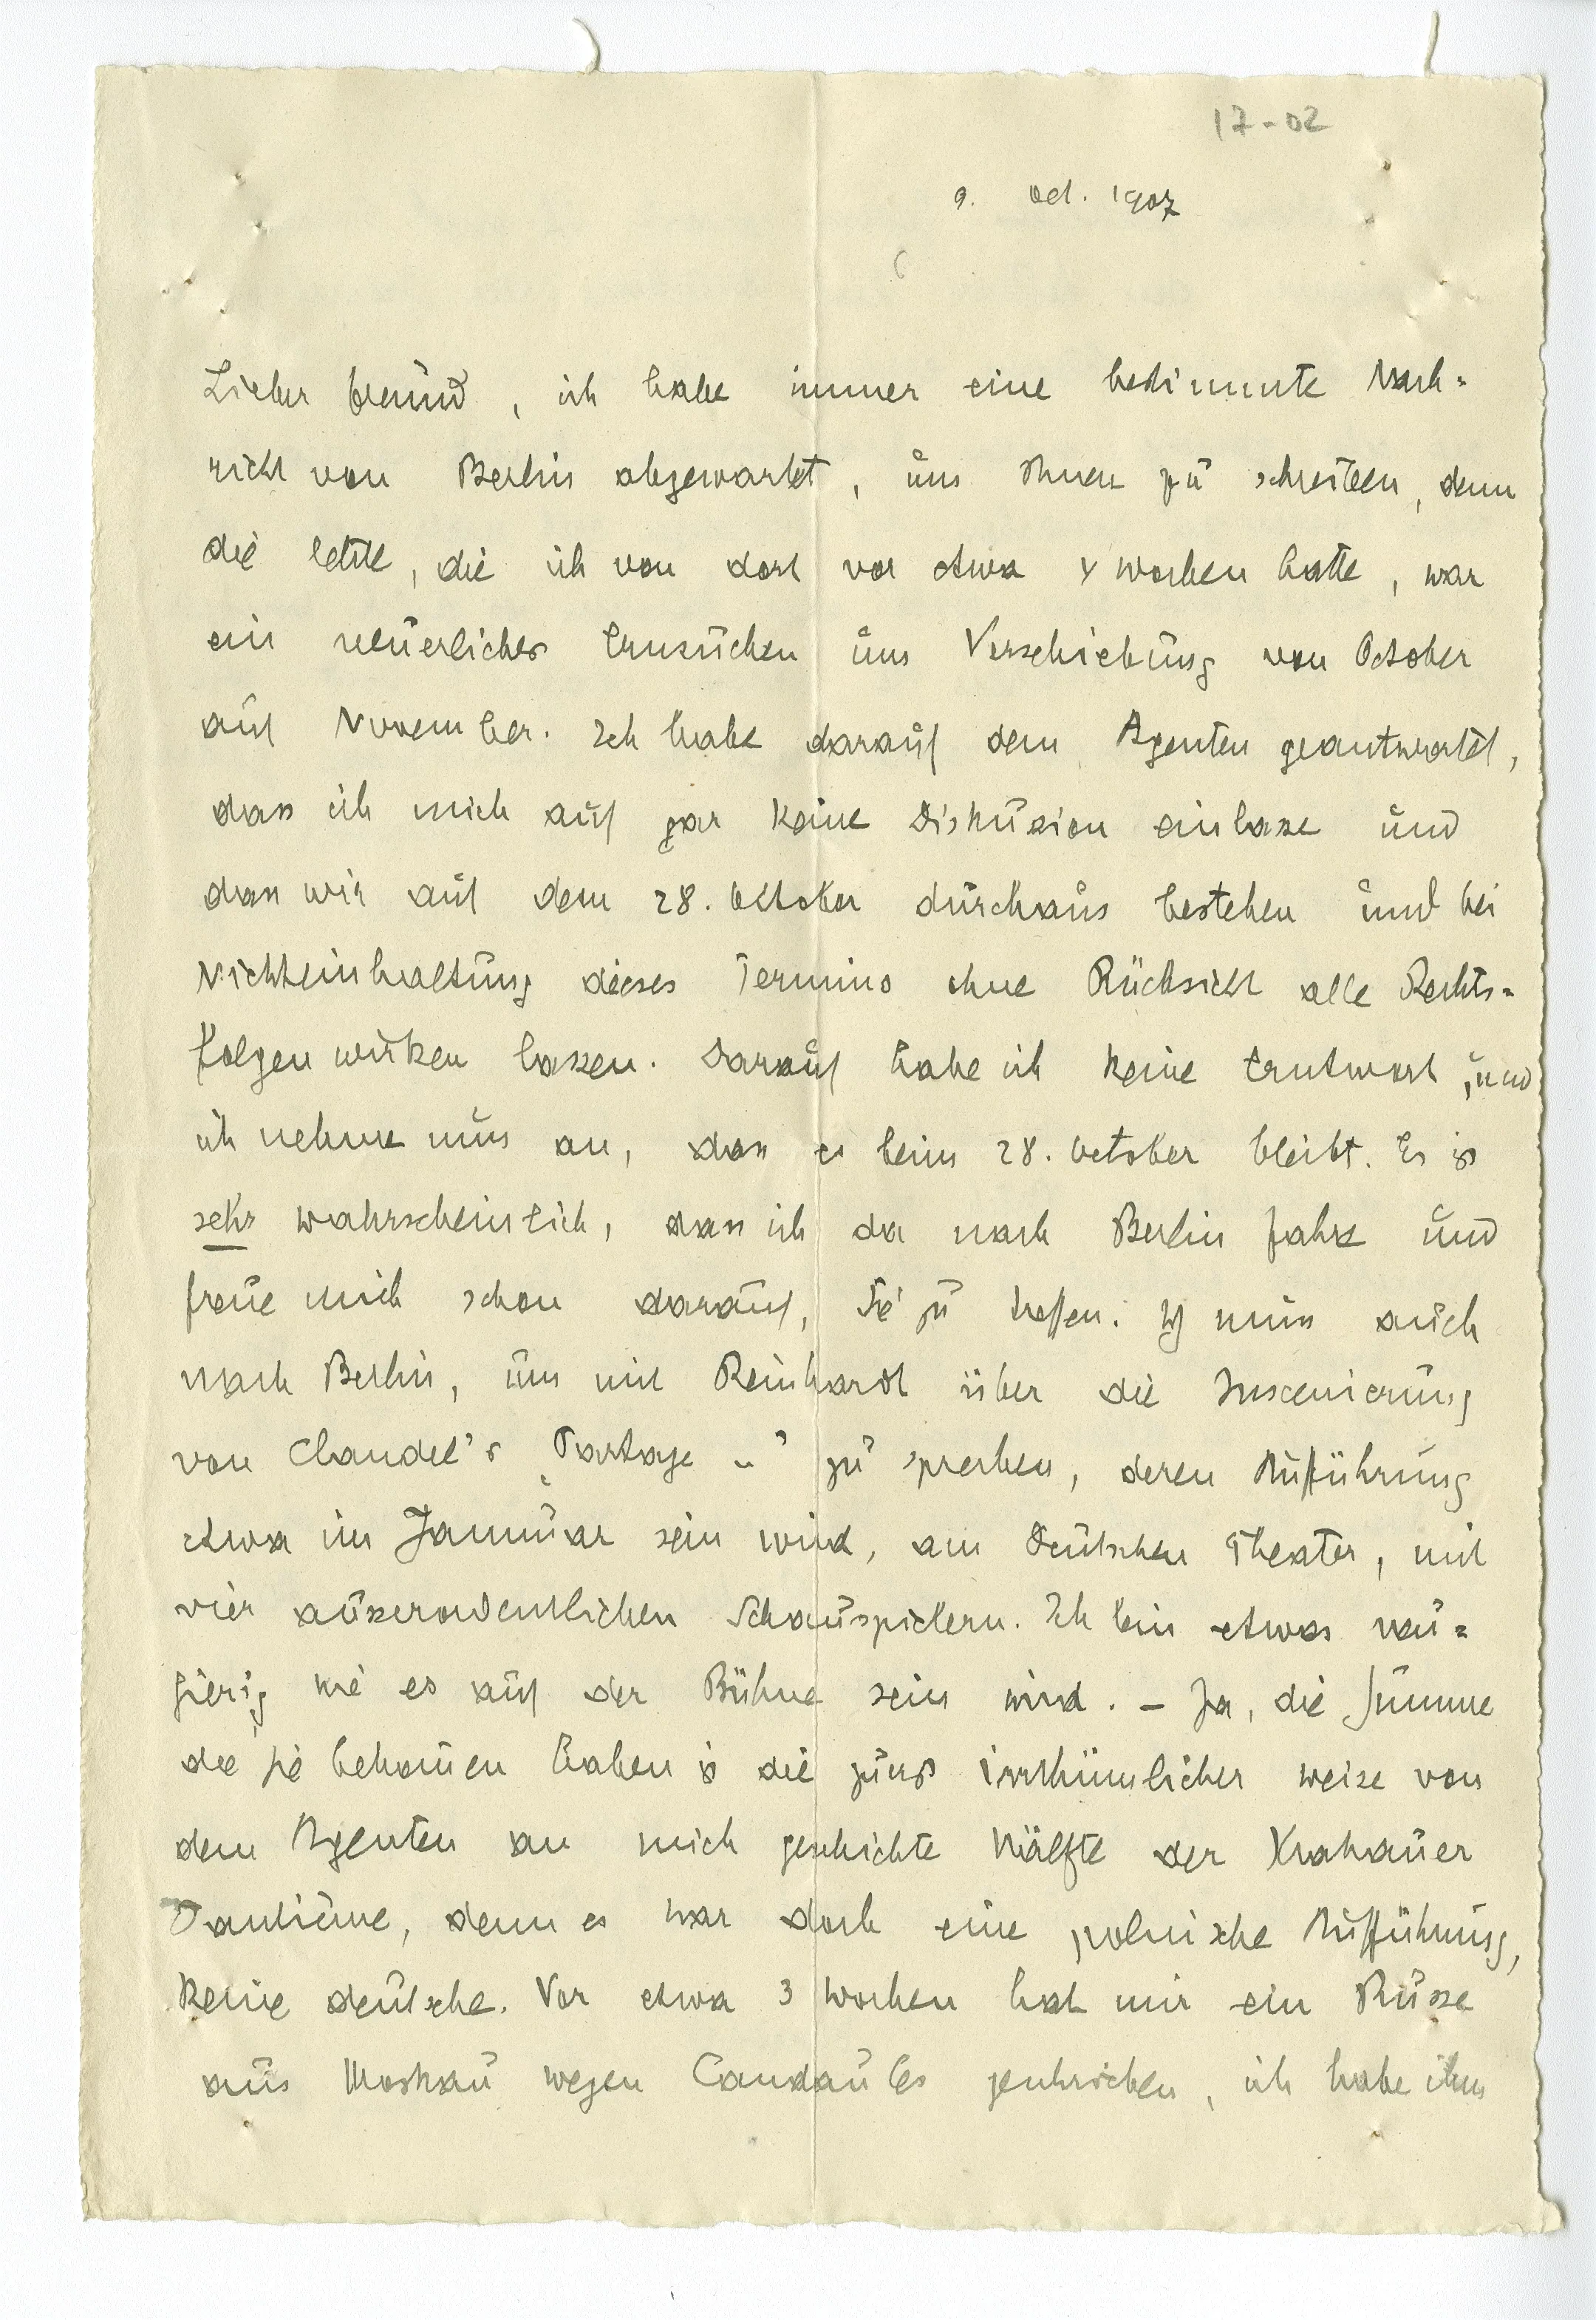 17-02
9. Oct. 1907
Lieber Freund, ich habe immer eine bestimmte Nach=
richt von Berlin abgewartet, um Ihnen zu schreiben, denn
die letzte, die ich von dort vor etwa 4 Wochen hatte, war
ein neuerliches Ersuchen um Verschiebung von October
auf November. Ich habe darauf dem Agenten geantwortet,
dass ich mich auf gar keine Diskussion einlasse und
dass wir auf dem 28. October durchaus bestehen und bei
Nichteinhaltung dieses Termins ohne Rücksicht alle Rechts=
folgen wirken lassen. Darauf habe ich keine Antwort, und
ich nehme nun an, dass es beim 28. October bleibt. Es ist
sehr wahrscheinlich, dass ich da nach Berlin fahre und
freue mich schon darauf, Sie zu treffen. Ich muss auch
nach Berlin, um mit Reinhardt über die Inscenierung
von Claudel's „Partage .." zu sprechen, deren Aufführung
etwa im Januar sein wird, am Deutschen Theater, mit
vier ausserordentlichen Schauspielern. Ich bin etwas neu=
gierig wie es auf der Bühne sein wird. – Ja, die Summe
die Sie bekomen haben ist die zuerst irrthümlicher weise von
dem Agenten an mich geschickte Hälfte der Krakauer
Tantième, denn es war doch eine polnische Aufführung,
keine deutsche. Vor etwa 3 Wochen hat mir ein Russe
aus Moskau wegen Candaules geschrieben, ich habe ihm